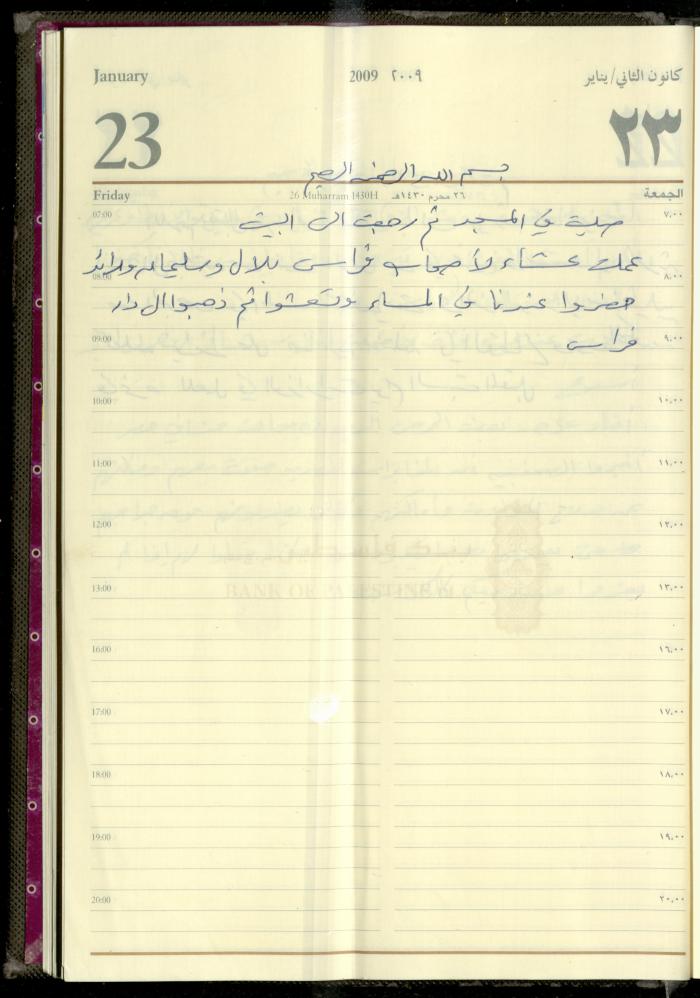 January 2009 ٢٠٠٩ كانون الثاني/يناير
23 ٢٣
بسم الله الرحمن الرحيم
Friday 26 Muharram 1430H ٢٦ محرم ١٤٣٠هـ الجمعة
07:00 ٧,٠٠
صليت في المسجد ثم رجعت الى البيت
عملت عشاء لأصحاب فراس بلال وسليمان ورائد
08:00 ٨,٠٠
حضروا عندنا في المساء وتعشوا ثم ذهبوا الى دار
09:00 ٩,٠٠
فراس
10:00 ١٠,٠٠
11:00 ١١,٠٠
12:00 ١٢,٠٠
BANK OF PALESTINE
13:00 ١٣,٠٠
16:00 ١٦,٠٠
17:00 ١٧,٠٠
18:00 ١٨,٠٠
19:00 ١٩,٠٠
20:00 ٢٠,٠٠